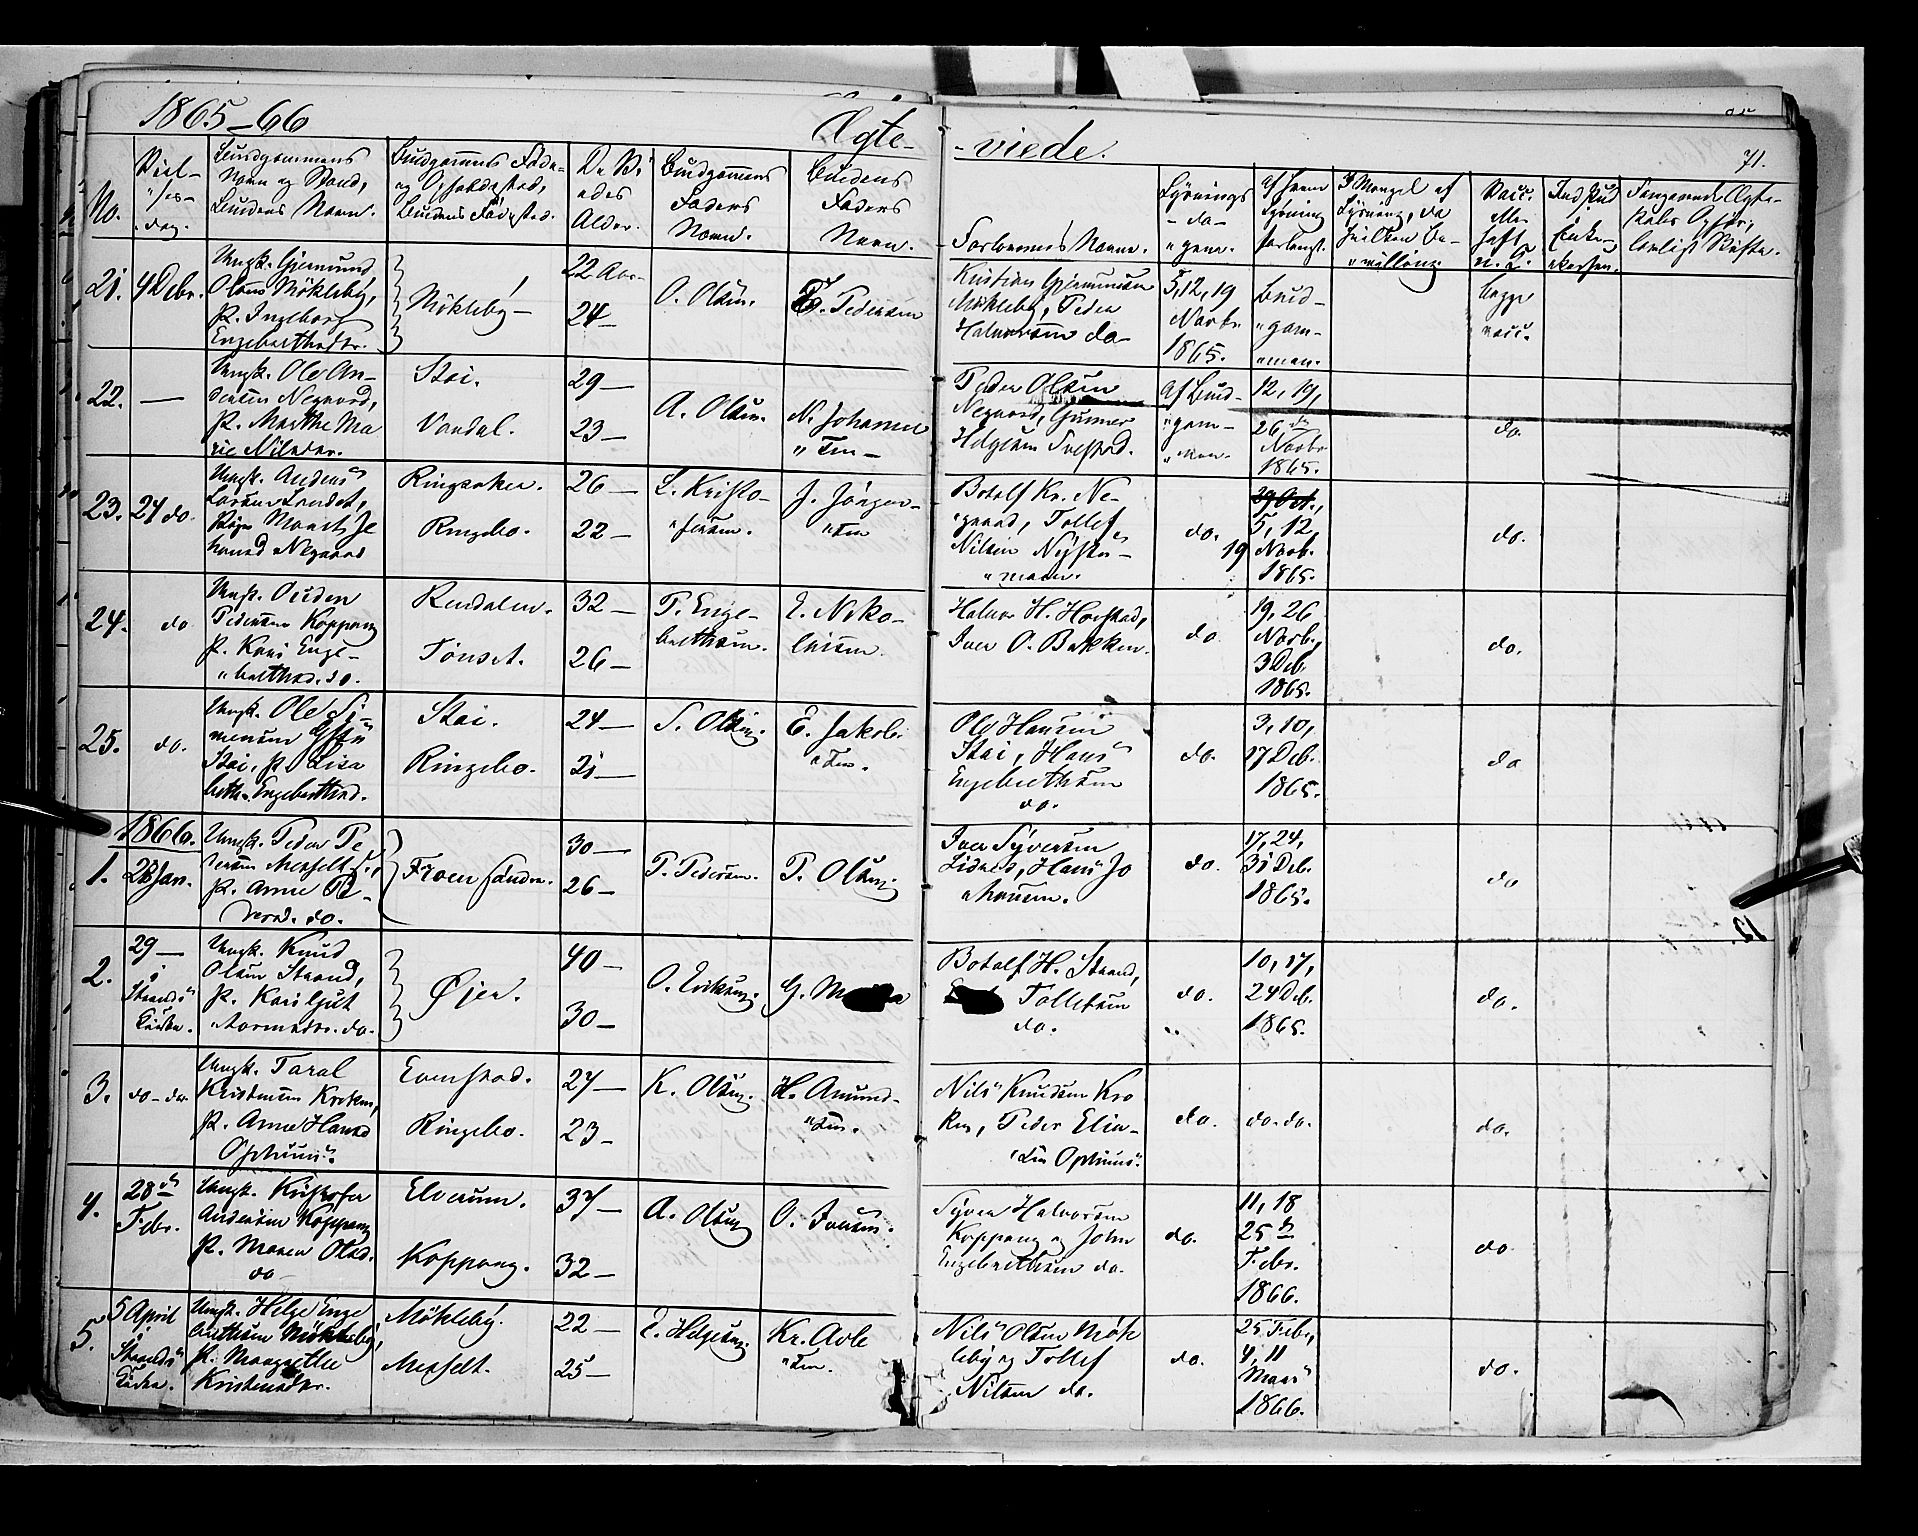 1865-66
Ægte-
-viede.
71.
No.
Viel-
ses-
dag.
Brudgommens
Navn og Stand,
Brudens Navn.
Brudgommens Føde-
og Opholdssted,
Brudens Fødested.
De Vi-
edes
Alder.
Brudgommens
Faders
Navn.
Brudens
Faders
Navn.
Forlovernes Navne.
Lysnings
-da-
gene.
Af hvem
Lysning
forlangt.
I Mangel af
Lysning, da
hvilken Be-
villing.
Vacc.
eller
haft
n. B.
Ind Bud
i
Enke-
kassen.
Foregaaende Ægte-
skabs Ophør,
lovligt Skifte.
21. 4 Debr.
Ungk. Gjermund
Olsen Mökleby,
P. Ingeborg
Engebrethsdr.
Mökleby-
22 Aar-
24-
O. Olsen.
E. Pedersen
Kristian Gjermundsen
Mökleby, Peder
Halvorsen do-
5, 12, 19
Novbr.
1865.
Brud-
gom-
men.
begge
vacc.
22. -
Ungk. Ole An-
dersen Negaard,
P. Marthe Ma
rie Nilsdr.
Stai.
Vaadal.
29-
23-
A. Olsen.
N. Johannes
sen-
Peder Olsen
Negaard, Gunner
Helgesen Trefstad.
Af Brud-
gom-
men.
12, 19,
26de
Novbr.
1865.
do.
23. 24 do.
Ungk. Anders
Larsen Landet,
Pige Marit Jo
hansd. Negaard
Ringsaker.
Ringebo.
26-
22-
L. Kristo-
fersen.
J. Jörgen-
sen
Botolf Kr. Ne-
gaard, Tollef
Nilsen Nysteu-
moen.
do.
29 Oct.,
5, 12,
19 Novb.
1865.
do.
24. do.
Ungk. Ouden
Pedersen Koppang
P. Kari Enge-
brethsd. do.
Rendalen.
Tönset.
32-
26-
P. Enge-
brethsen.
E. Niko-
laisen.
Halvor H. Harstad,
Iver O. Bakken.
do
19, 26
Novb.,
3 Deb.
1865.
do.
25. do.
Ungk. Ole Si-
mensen
Stai, P. Lisa
beth Engebrethsd.
Stai.
Ringebo.
24-
21-
S. Olsen.
E. Jakob-
sen.
Ole Hansen
Stai, Hans
Engebrethsen
do.
do.
3, 10,
17 Deb.
1865.
do
1866.
1. 28 Jan.
Ungk. Peder Pe
dersen Messelt
P. Anne Pe-
dersd. do.
Froensanden.
30-
26-
P. Pedersen.
P. Olsen.
Iver Syversen
Lidnes, Hans Jo
hansen.
do.
17, 24,
31 Deb.
1865.
do
2. 29-
i
Strands
Kirke.
Ungk. Knud
Olsen Strand,
P. Kari Gut
tormsdr. do.
Øjer.
40-
30-
O. Eriksen.
G.
Botolf H. Strand,
Tollefsen
do.
do.
10, 17,
24 Deb.
1865.
do.
3. do-do-
Ungk. Taral
Kristensen Kroken,
P. Anne Hansd
Ophuus.
Evenstad.
Ringebo.
27-
23-
K. Olsen.
H. Amund-
sen.
Nils Knudsen Kro
ken, Peder Elia-
sen Ophuus.
do.
do. do.
do.
4. 28de
Febr.
Ungk. Kristofer
Andersen Koppang
P. Maren Olsd.
do-
Elverum.
Koppang.
37-
32-
A. Olsen
O. Iversen.
Syver Halvorsen
Koppang og John
Engebrethsen do.
do.
11, 18
25de
Febr.
1866.
do
5. 5 April
i
Strands
Kirke.
Ungk. Helge Enge
brethsen Mökleby,
P. Margrethe
Kristensdr.
Mökleby.
Messelt.
22-
25-
E. Helgesen.
Kr. Avle
sen.
Nils Olsen Mök
leby og Tollef
Nilsen do.
do.
25 Febr,
4, 11
Mars
1866.
do.